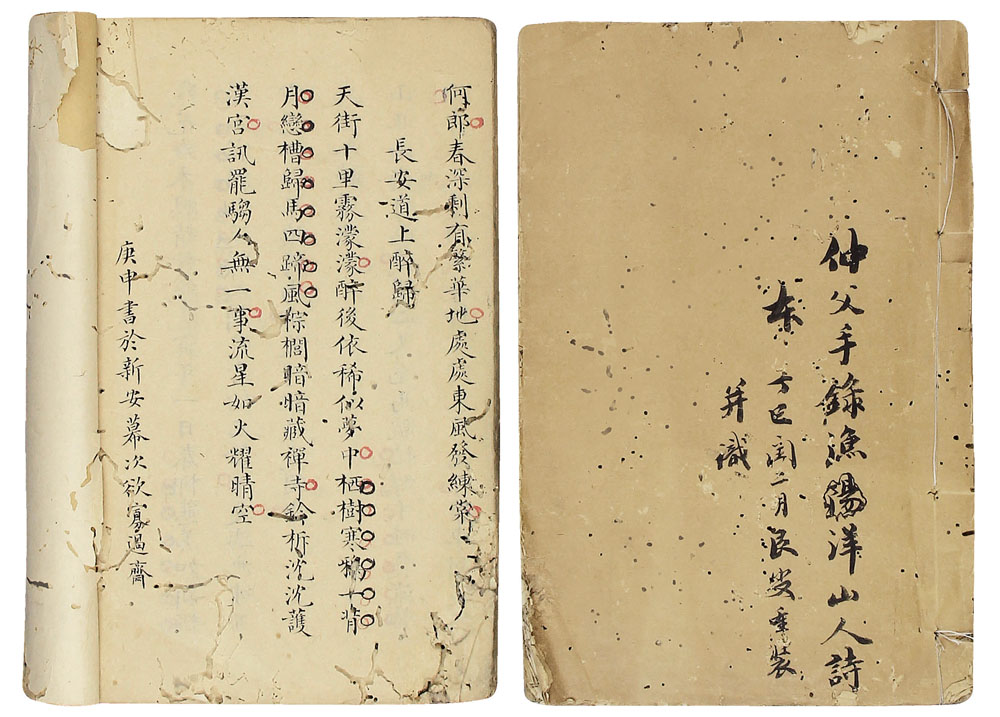 何郎春深剩有繁華地處處東風發練
長安道上醉歸
天街十里霧濛濛醉後依稀似夢中栖樹寒鴉十背
月戀槽歸馬四蹄風棕櫚暗暗藏禪寺鈴柝沈沈護
漢宮訊罷騶人無一事流星如火耀晴空
庚申書於新安幕次欲寡過齋
仲父手錄漁洋山人詩
本 丁巳閏二月良叟重裝
并識